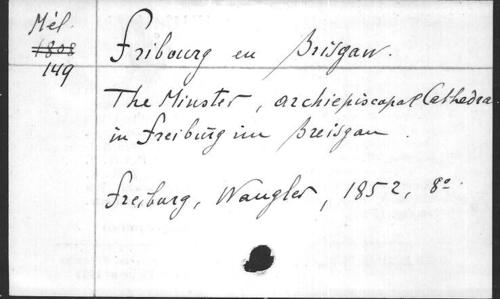 Mél.
1808
149
Fribourg en Brisgaw.
The Minster, archiepiscopal Cathedra
in Freiburg im Breisgau.
Freiburg, Wangler, 1852, 8º.